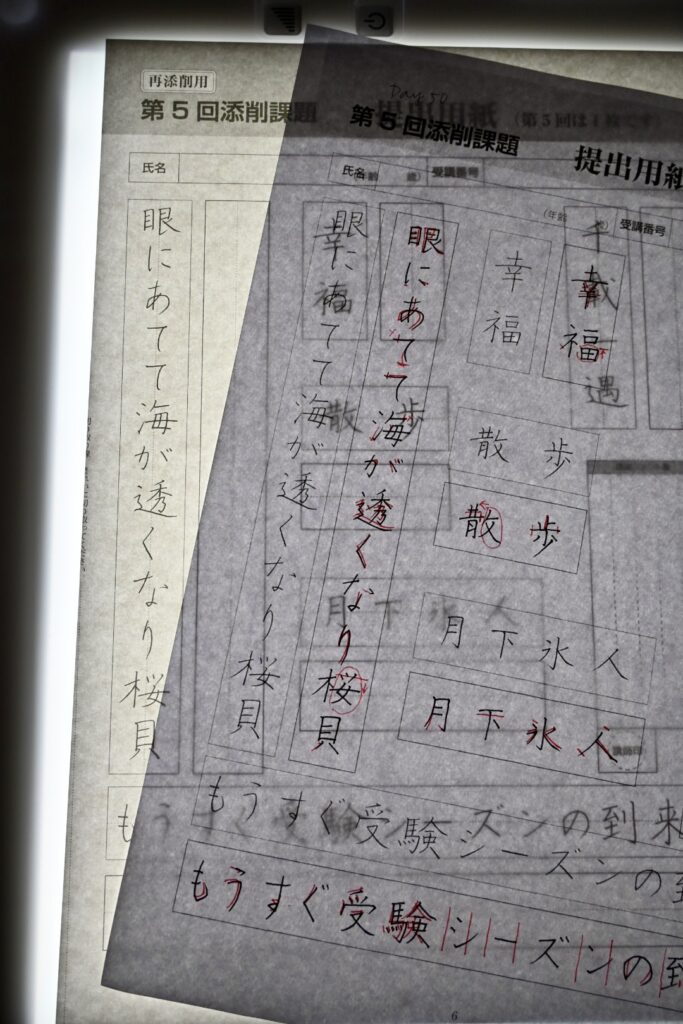 再添削用
第5回添削課題
提出用紙
(第5回は1枚です)
氏名
受講番号
眼にあてて海が透くなり桜貝
幸福
千載一遇
散歩
月下氷人
もうすぐ受験シーズンの到来
Day 50
第5回添削課題
提出用紙
氏名
(年齢
受講番号
眼にあてて海が透くなり桜貝
眼にあてて海が透くなり桜貝
幸福
幸福
散歩
散歩
月下氷人
月下氷人
もうすぐ受験シーズンの到
もうすぐ受験シーズンの到
6